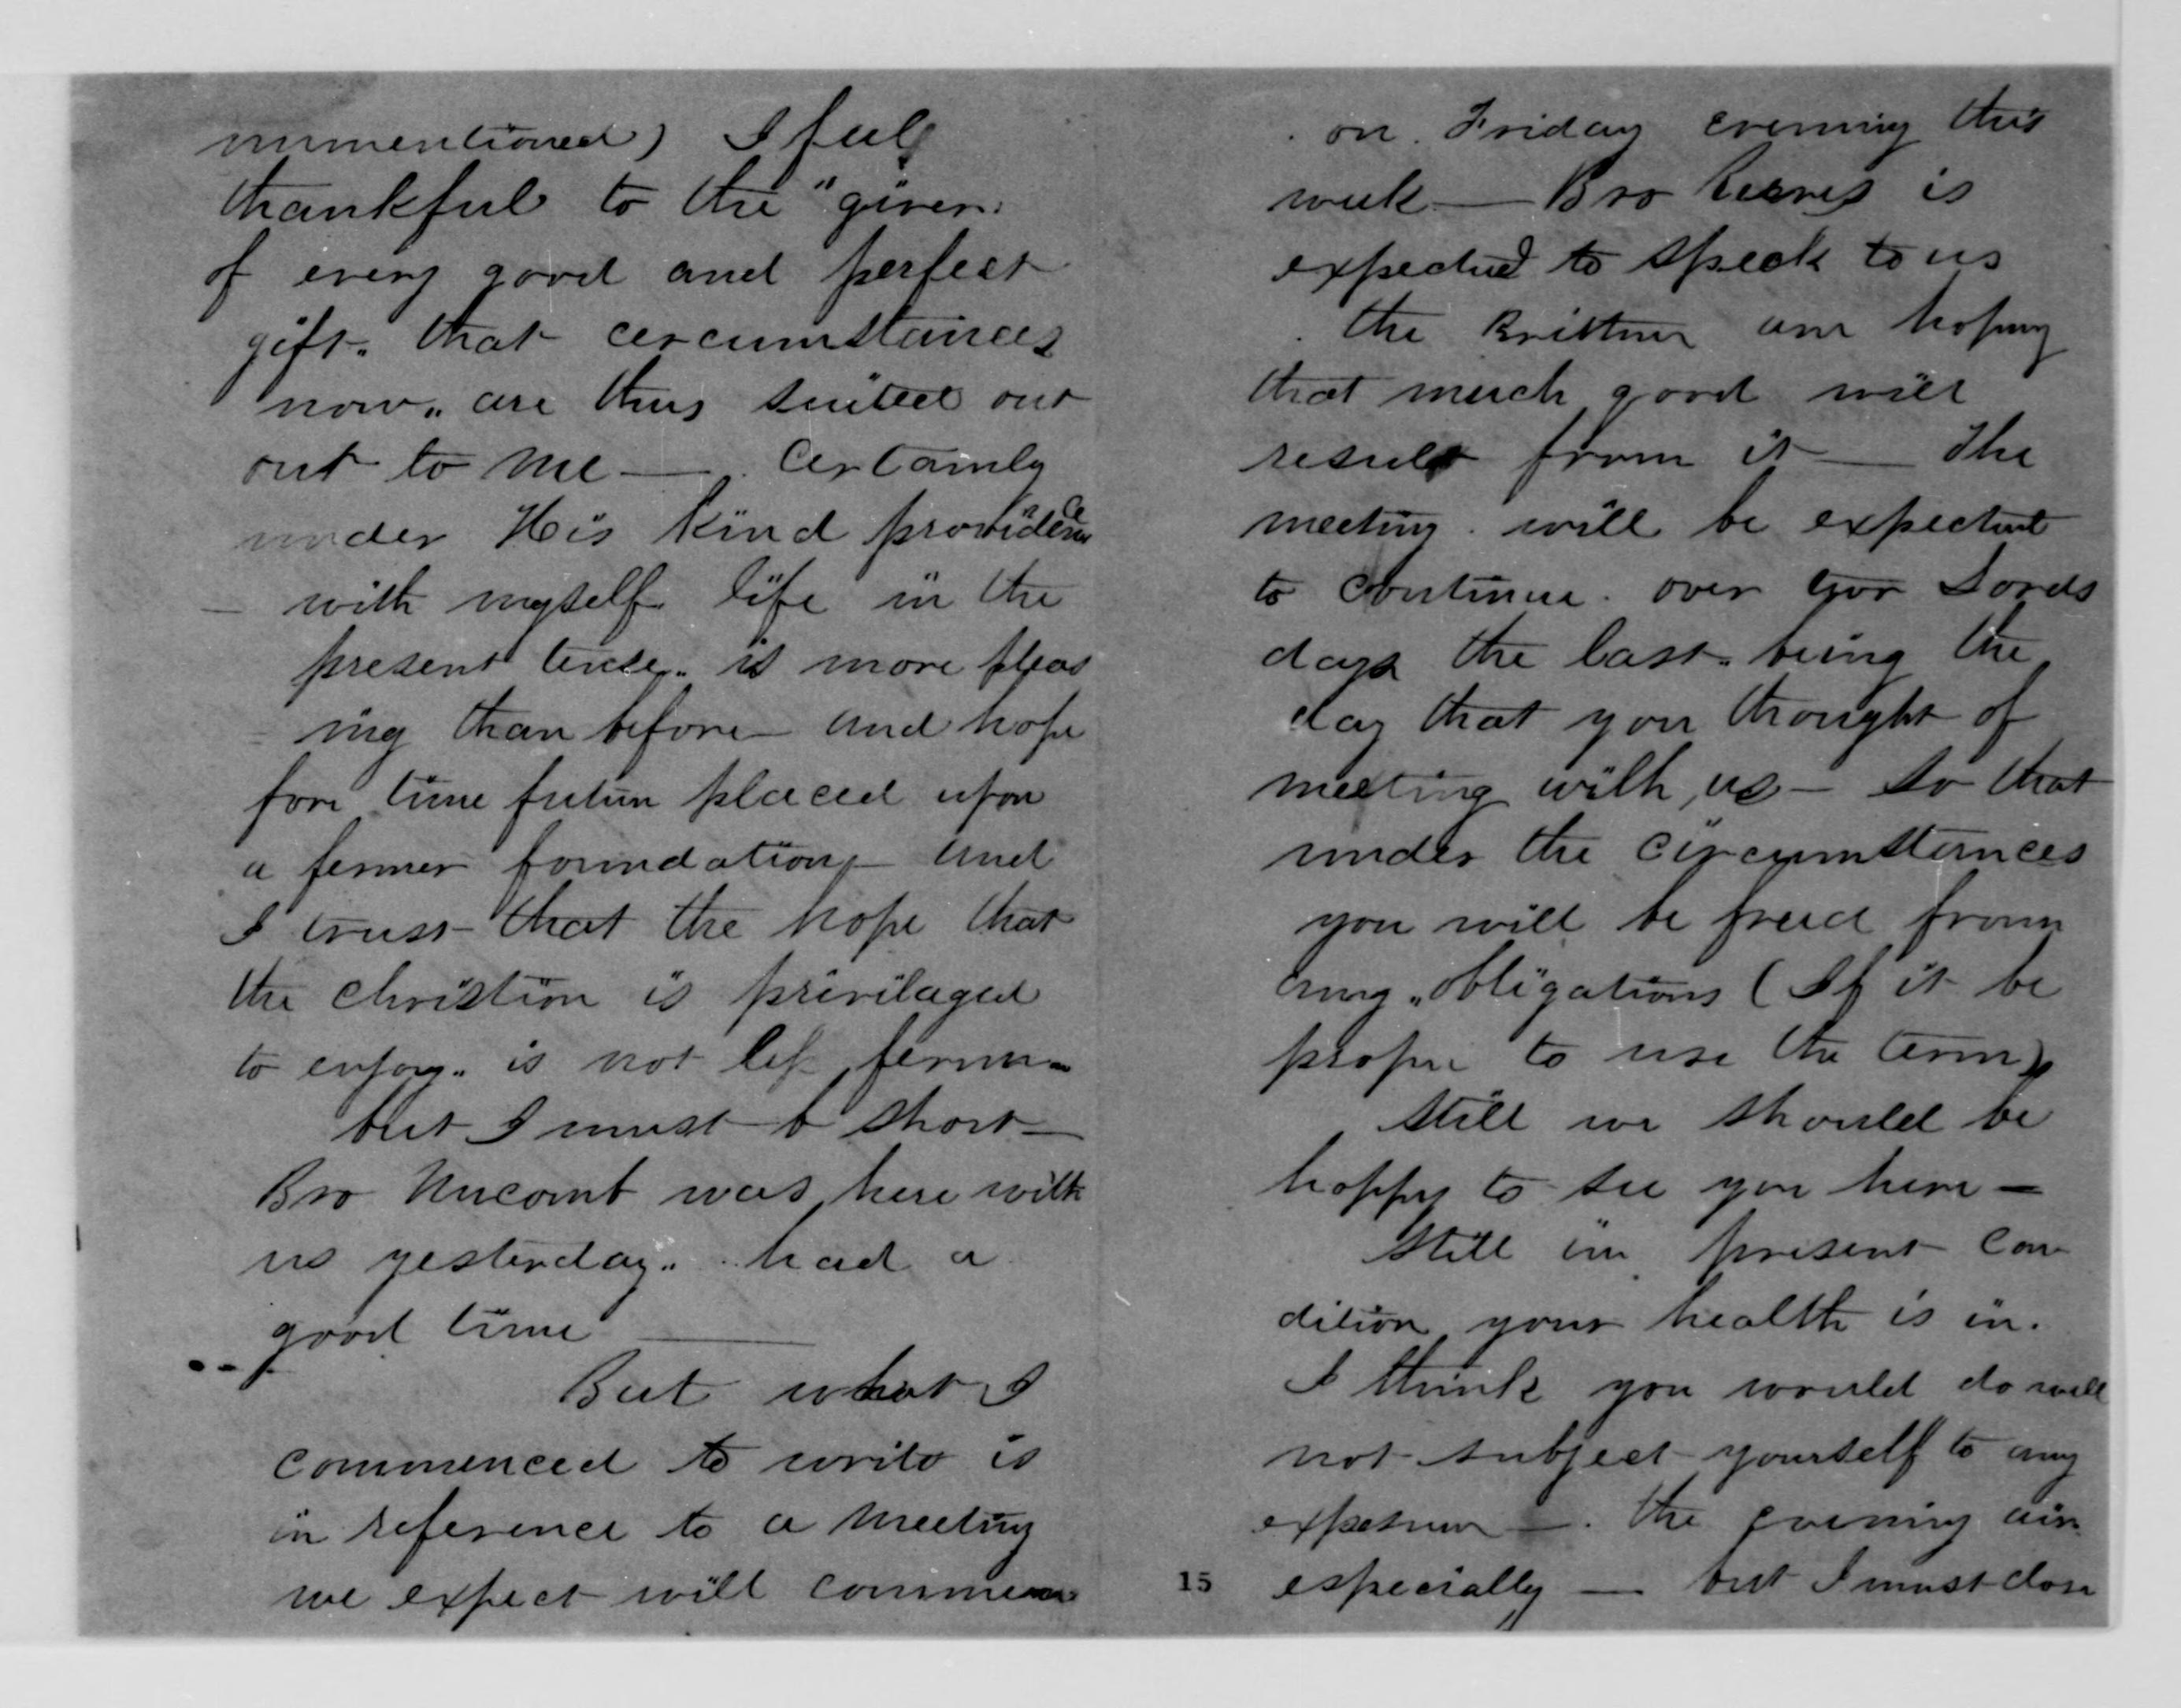 unmentioned) I feel
thankful to the "giver
of every good and perfect
gift" that circumstances
now" are thus suited out
out to me — Certainly
under His kind providence
— with myself life in the
present tense" is more pleas
ing than before — and hope
fore time future placed upon
a fermer foundation — and
I trust that the hope that
the christion is privilaged
to enjoy" is not less ferm —
but I must b short —
Bro Nucomb was here with
us yesterday" had a
good time —
But what I
commenced to write is
in reference to a meeting
we expect will commence
on Friday evening this
week — Bro is
expected to speek to us
the are hoping
that much good will
result from it — The
meeting will be expected
to continue over Lords
days the last" being the
day that you thought of
meeting with us — so that
under the circumstances
you will be freed from
any "obligations (If it be
proper to use the term)
still we should be
happy to see you here —
still in present con
dition your health is in.
I think you would do well
not subject yourself to any
exposure — the evening air
15 especially — but I must close